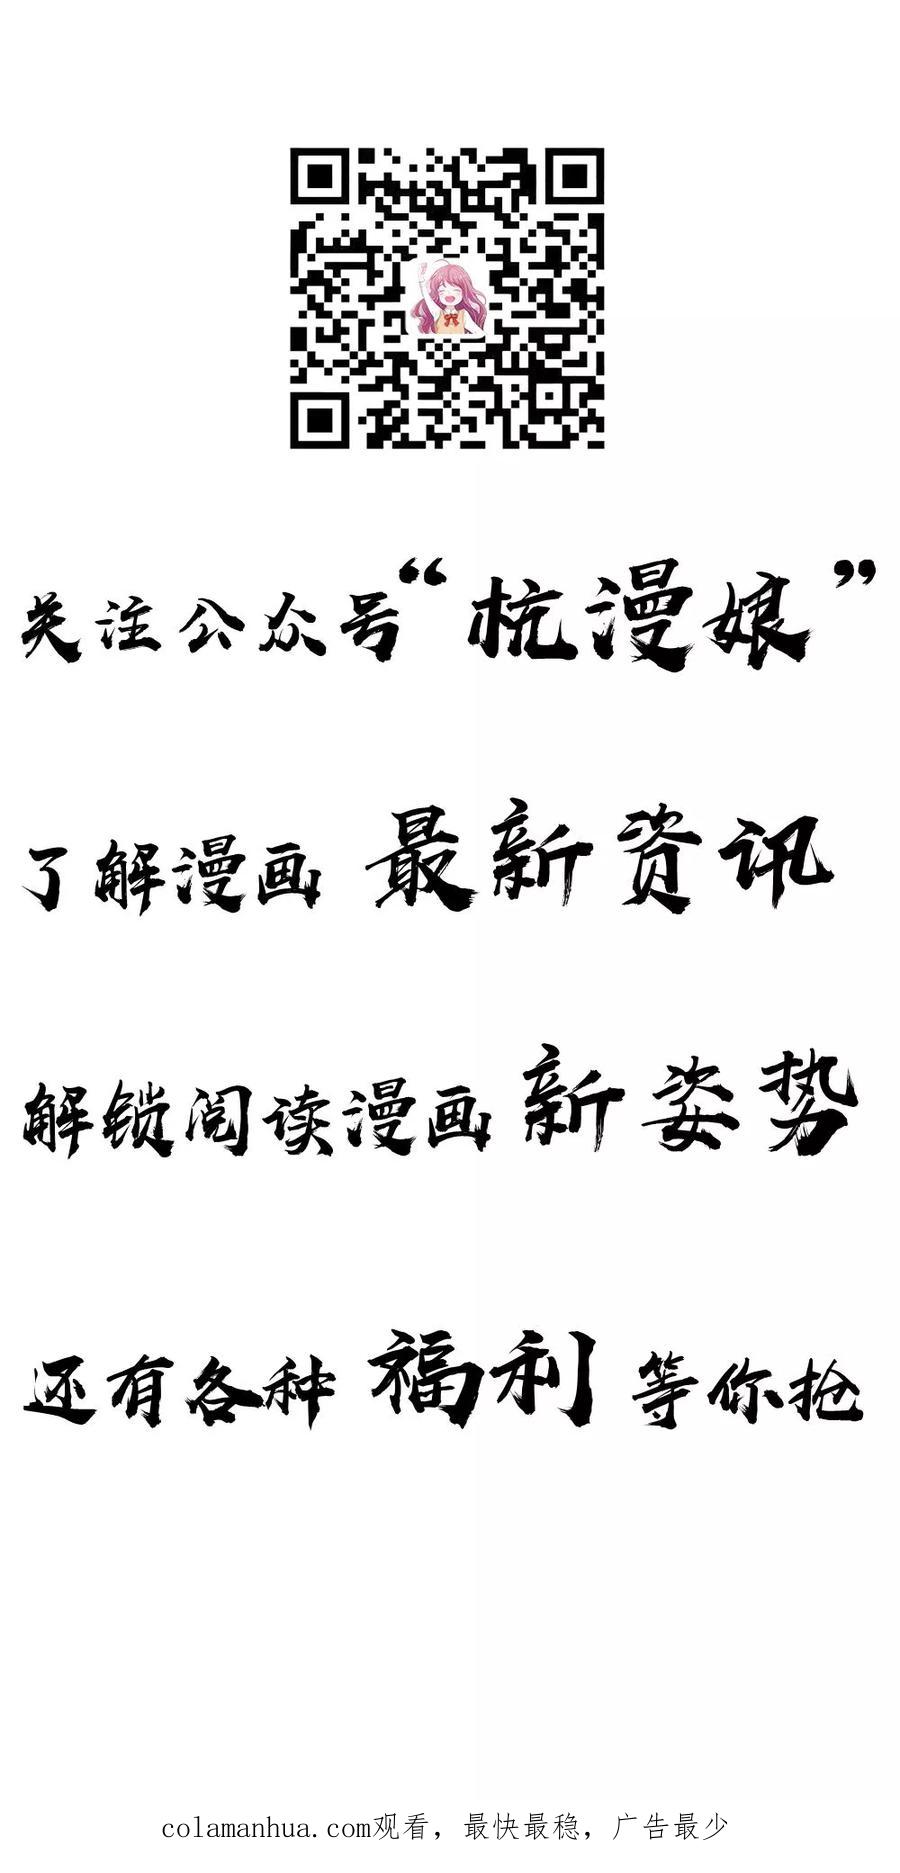 关注公众号“杭漫娘”
了解漫画 最新资讯
解锁阅读漫画 新姿势
还有各种 福利 等你抢
colamanhua.com观看，最快最稳，广告最少